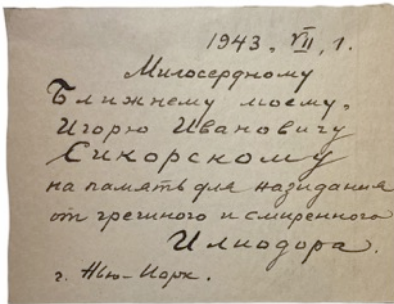 1943, VII, 1.
Милосердному
Ближнему моему,
Игорю Ивановичу
Сикорскому
на память для назидания
от грешного и смиренного
Илиодора.
г. Нью-Иорк.